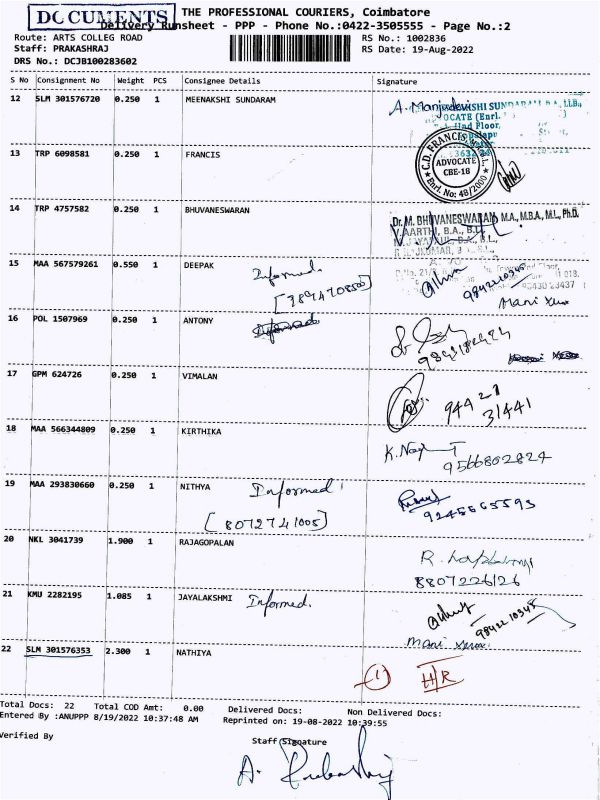 DOCUMENTS
THE PROFESSIONAL COURIERS, Coimbatore
Delivery Runsheet - PPP - Phone No.:0422-3505555 - Page No.:2
Route: ARTS COLLEG ROAD RS No.: 1002836
Staff: PRAKASHRAJ RS Date: 19-Aug-2022
DRS No.: DCJB100283602
S No Consignment No Weight PCS Consignee Details Signature
12 SLM 301576720 0.250 1 MEENAKSHI SUNDARAM A. Manjudevi
13 TRP 6098581 0.250 1 FRANCIS
C.D. FRANCIS
ADVOCATE
CBE-18
Enrl. No: 48/2000
14 TRP 4757582 0.250 1 BHUVANESWARAN
Dr. M. BHUVANESWARAN, M.A., M.B.A., M.L., Ph.D.
V. AARTHI, B.A., B.L.
15 MAA 567579261 0.550 1 DEEPAK Informed. 9842210348
Mani
16 POL 1507969 0.250 1 ANTONY Informed
17 GPM 624726 0.250 1 VIMALAN 94427
31441
18 MAA 566344809 0.250 1 KIRTHIKA
9566802824
19 MAA 293830660 0.250 1 NITHYA Informed
[8072741005] 9245665593
20 NKL 3041739 1.900 1 RAJAGOPALAN
8807226126
21 KMU 2282195 1.085 1 JAYALAKSHMI Informed. 9842210348
Mani
22 SLM 301576353 2.300 1 NATHIYA 1 H/R
Total Docs: 22 Total COD Amt: 0.00 Delivered Docs: Non Delivered Docs:
Entered By :ANUPPP 8/19/2022 10:37:48 AM Reprinted on: 19-08-2022 10:39:55
Verified By Staff Signature